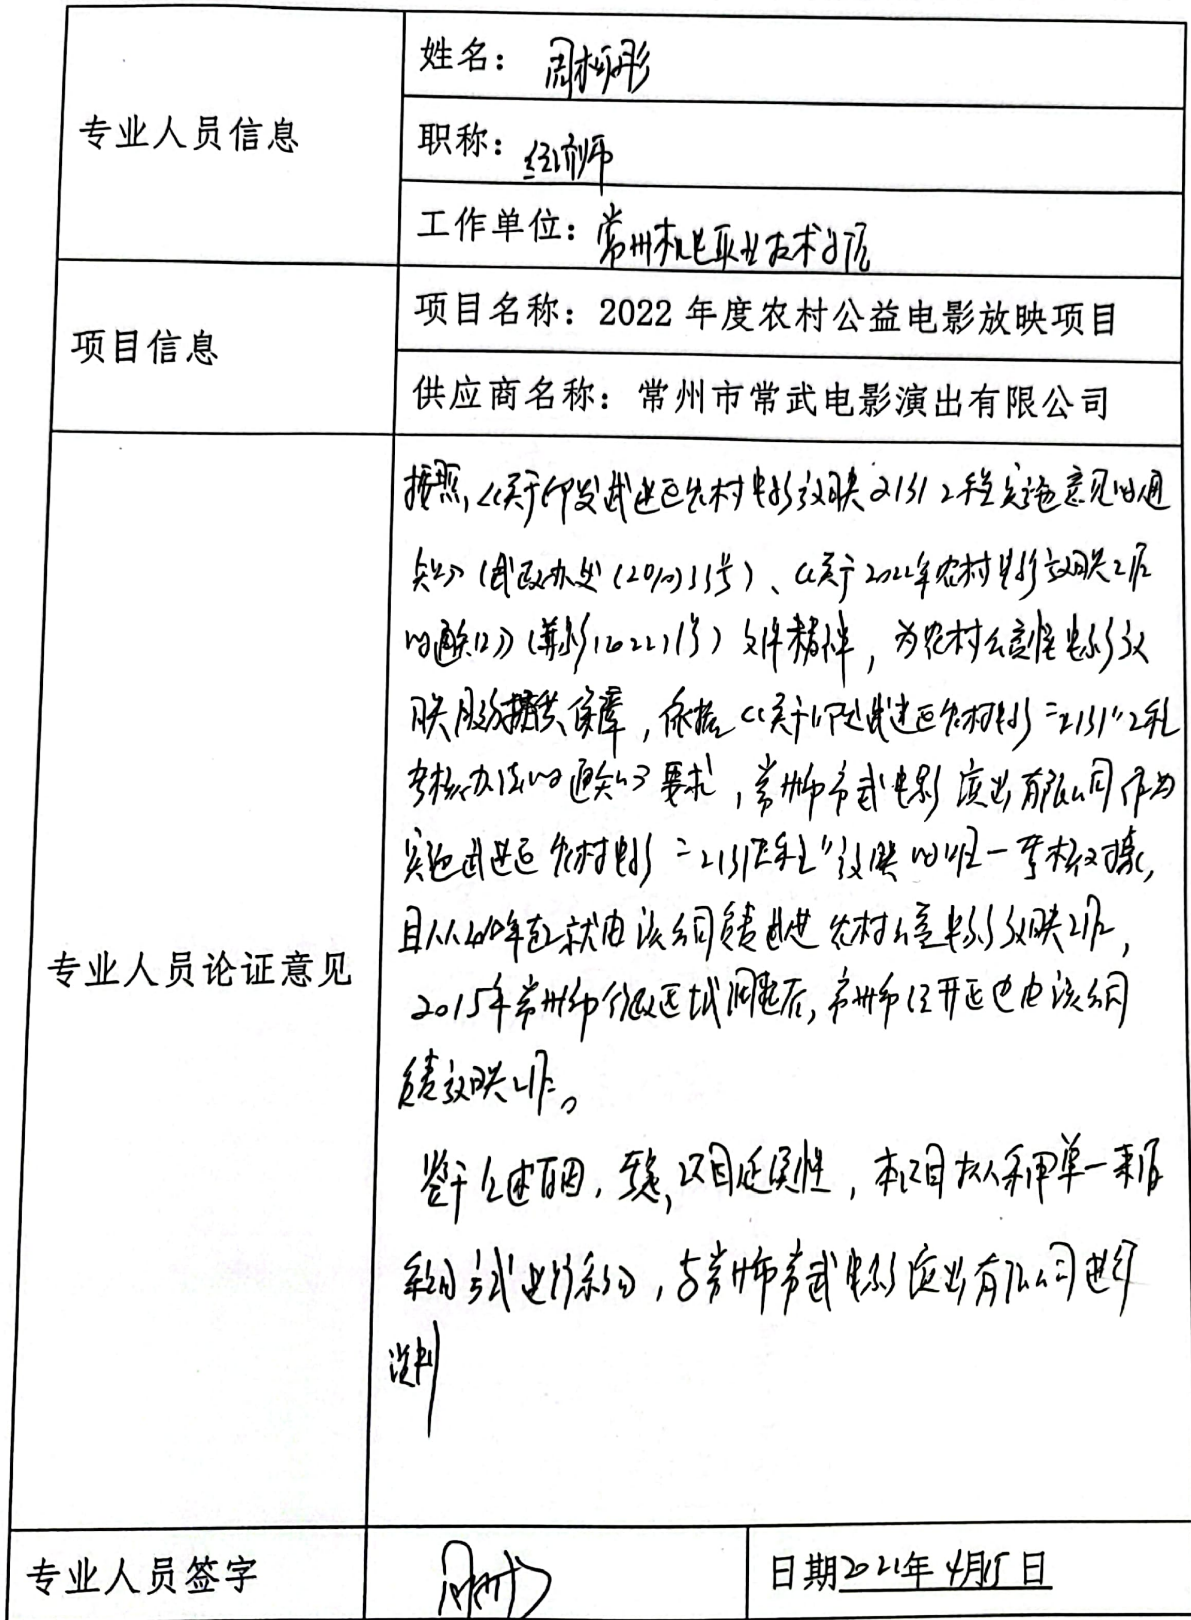 专业人员信息
姓名：周柯彤
职称：经济师
工作单位：常州机电职业技术学院
项目信息
项目名称：2022 年度农村公益电影放映项目
供应商名称：常州市常武电影演出有限公司
专业人员论证意见
按照，《关于印发武进区农村电影放映2131工程实施意见的通
知》（武政办发（2010）33号）、《关于2022年农村电影放映工作
的通知》（苏影（2022）1号）文件精神，为农村公益性电影放
映服务提供保障，依据《关于印发武进区农村电影“2131”工程
考核办法的通知》要求，常州市常武电影演出有限公司作为
实施武进区农村电影“2131工程”放映的唯一考核对象，
且从2010年起就由该公司负责武进农村公益电影放映工作，
2015年常州市行政区域调整后，常州市经开区也由该公司
负责放映工作。
鉴于上述原因，考虑，项目延续性，本项目拟采用单一来源
采购方式进行采购，与常州市常武电影演出有限公司进行
谈判
专业人员签字
日期2022年4月15日